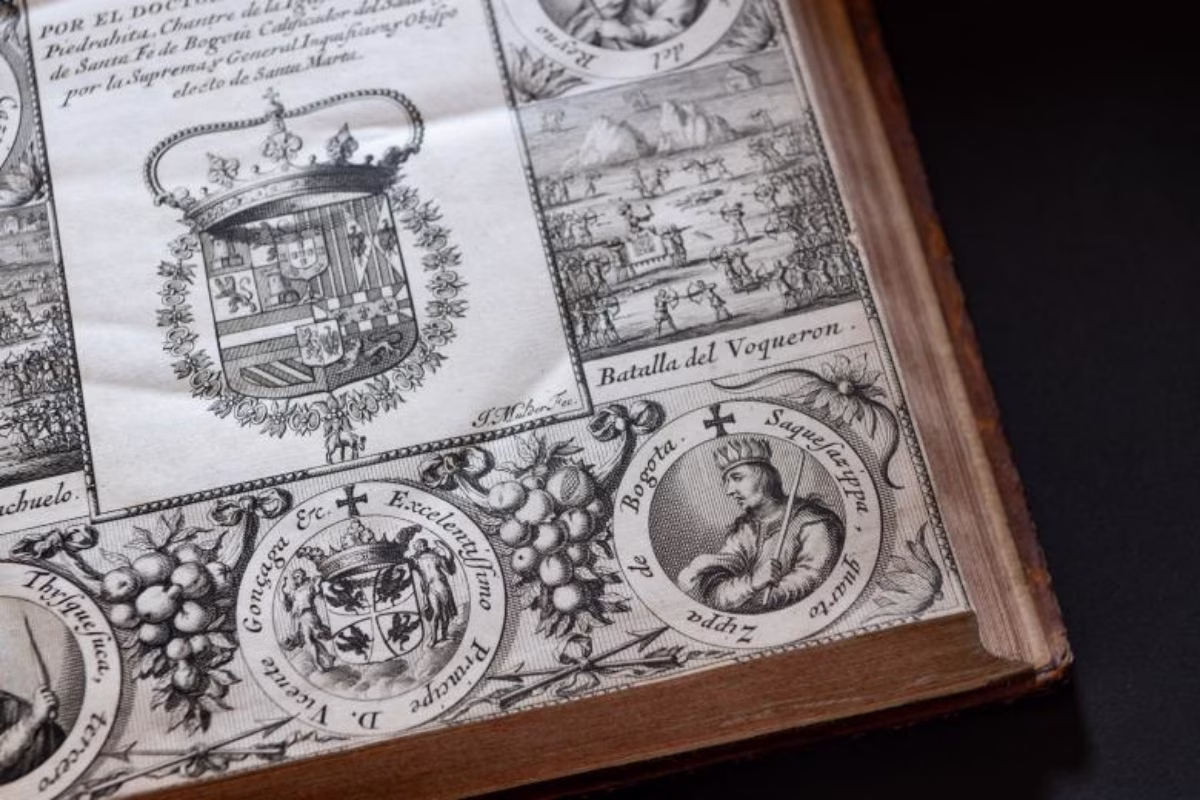 POR EL DOCTO
Piedrahita, Chantre de la Igl
de Santa Fe de Bogotá Calificador del San
por la Suprema y General Inquisicion y Obispo
electo de Santa Marta.
del Reyno
Batalla del Voqueron.
J. Mulder Fec.
achuelo.
Thysquesuca, tercero
Excelentissimo Principe D. Vicente Gonçaga &c.
Saquesazippa, quarto Zippa de Bogota.